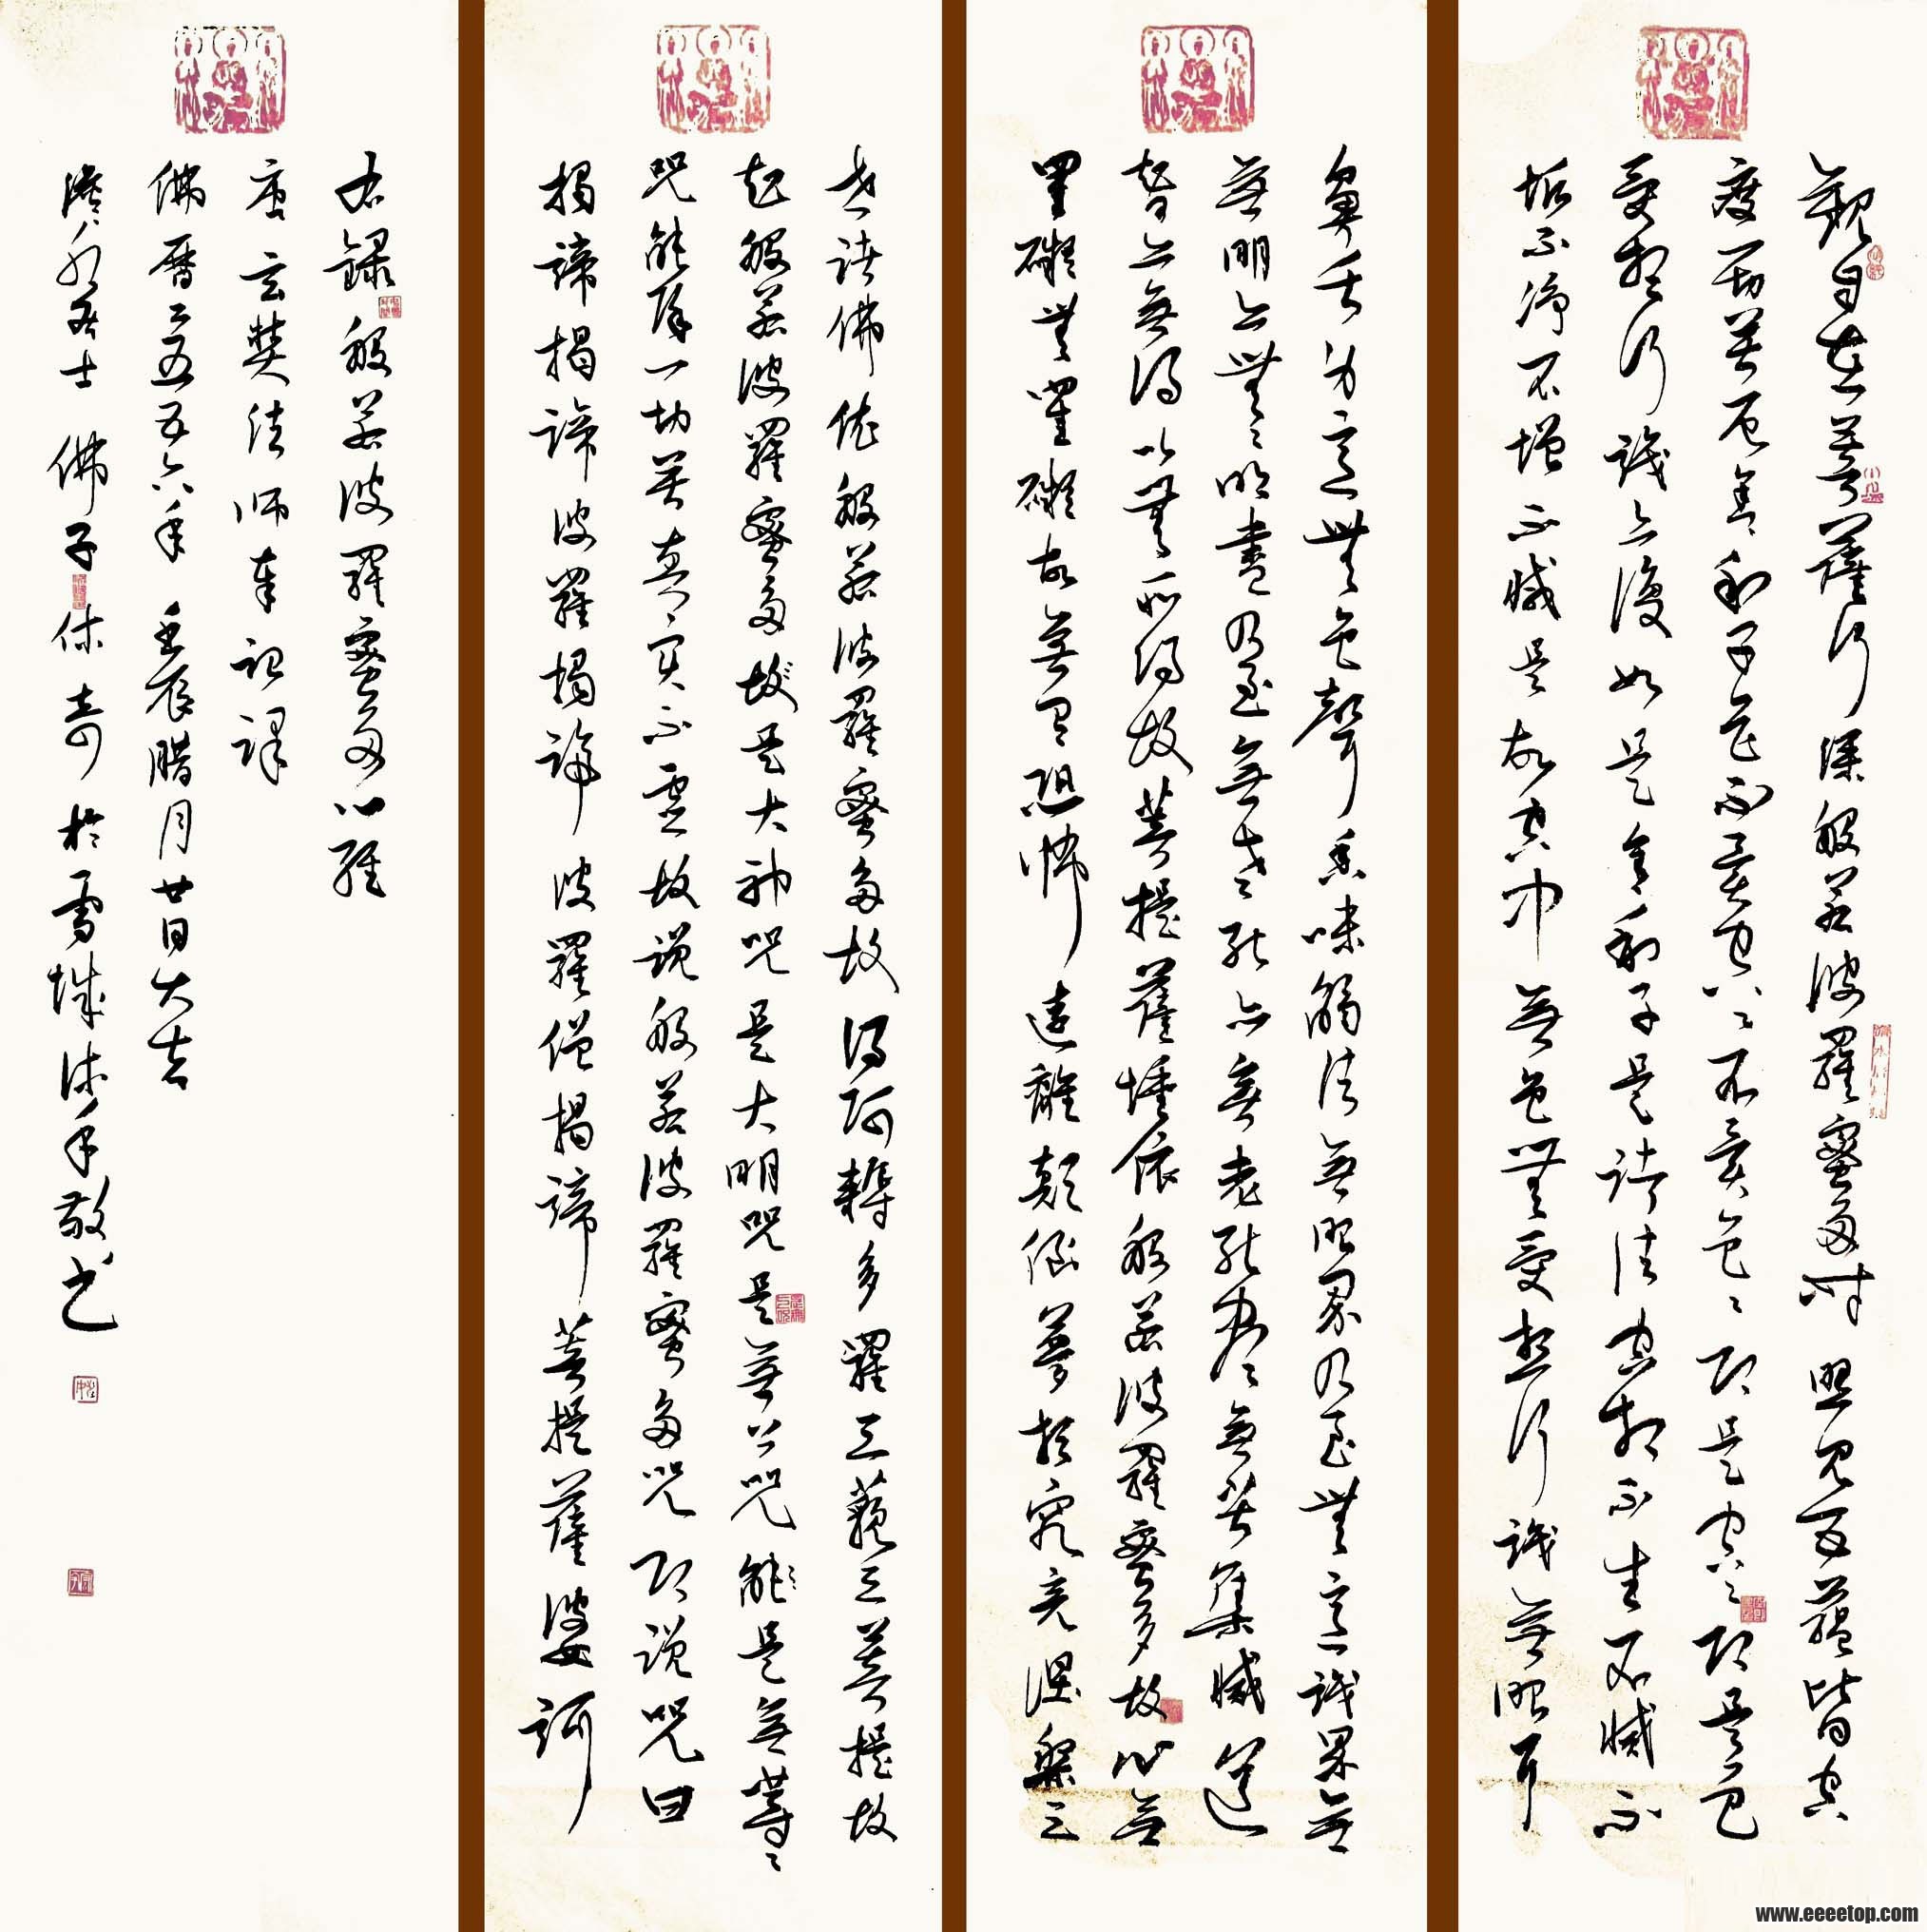 觀自在菩薩行深般若波羅蜜多時照見五蘊皆空
度一切苦厄舍利子色不異空空不異色色即是空空即是色
受想行識亦復如是舍利子是諸法空相不生不滅不
垢不淨不增不減是故空中無色無受想行識無眼耳
鼻舌身意無色聲香味觸法無眼界乃至無意識界無
無明亦無無明盡乃至無老死亦無老死盡無苦集滅道
無智亦無得以無所得故菩提薩埵依般若波羅蜜多故心無
罣礙無罣礙故無有恐怖遠離顛倒夢想究竟涅槃三
世諸佛依般若波羅蜜多故得阿耨多羅三藐三菩提故
知般若波羅蜜多故是大神咒是大明咒是無上咒能是無等等
咒能除一切苦真實不虛故說般若波羅蜜多咒即說咒曰
揭諦揭諦波羅揭諦波羅僧揭諦菩提薩婆訶
右錄般若波羅蜜多心經
唐玄奘法師奉詔譯
佛曆二五五六年壬辰臘月廿日大吉
居士佛子 奇於雪城 敬書
www.eeeetop.com